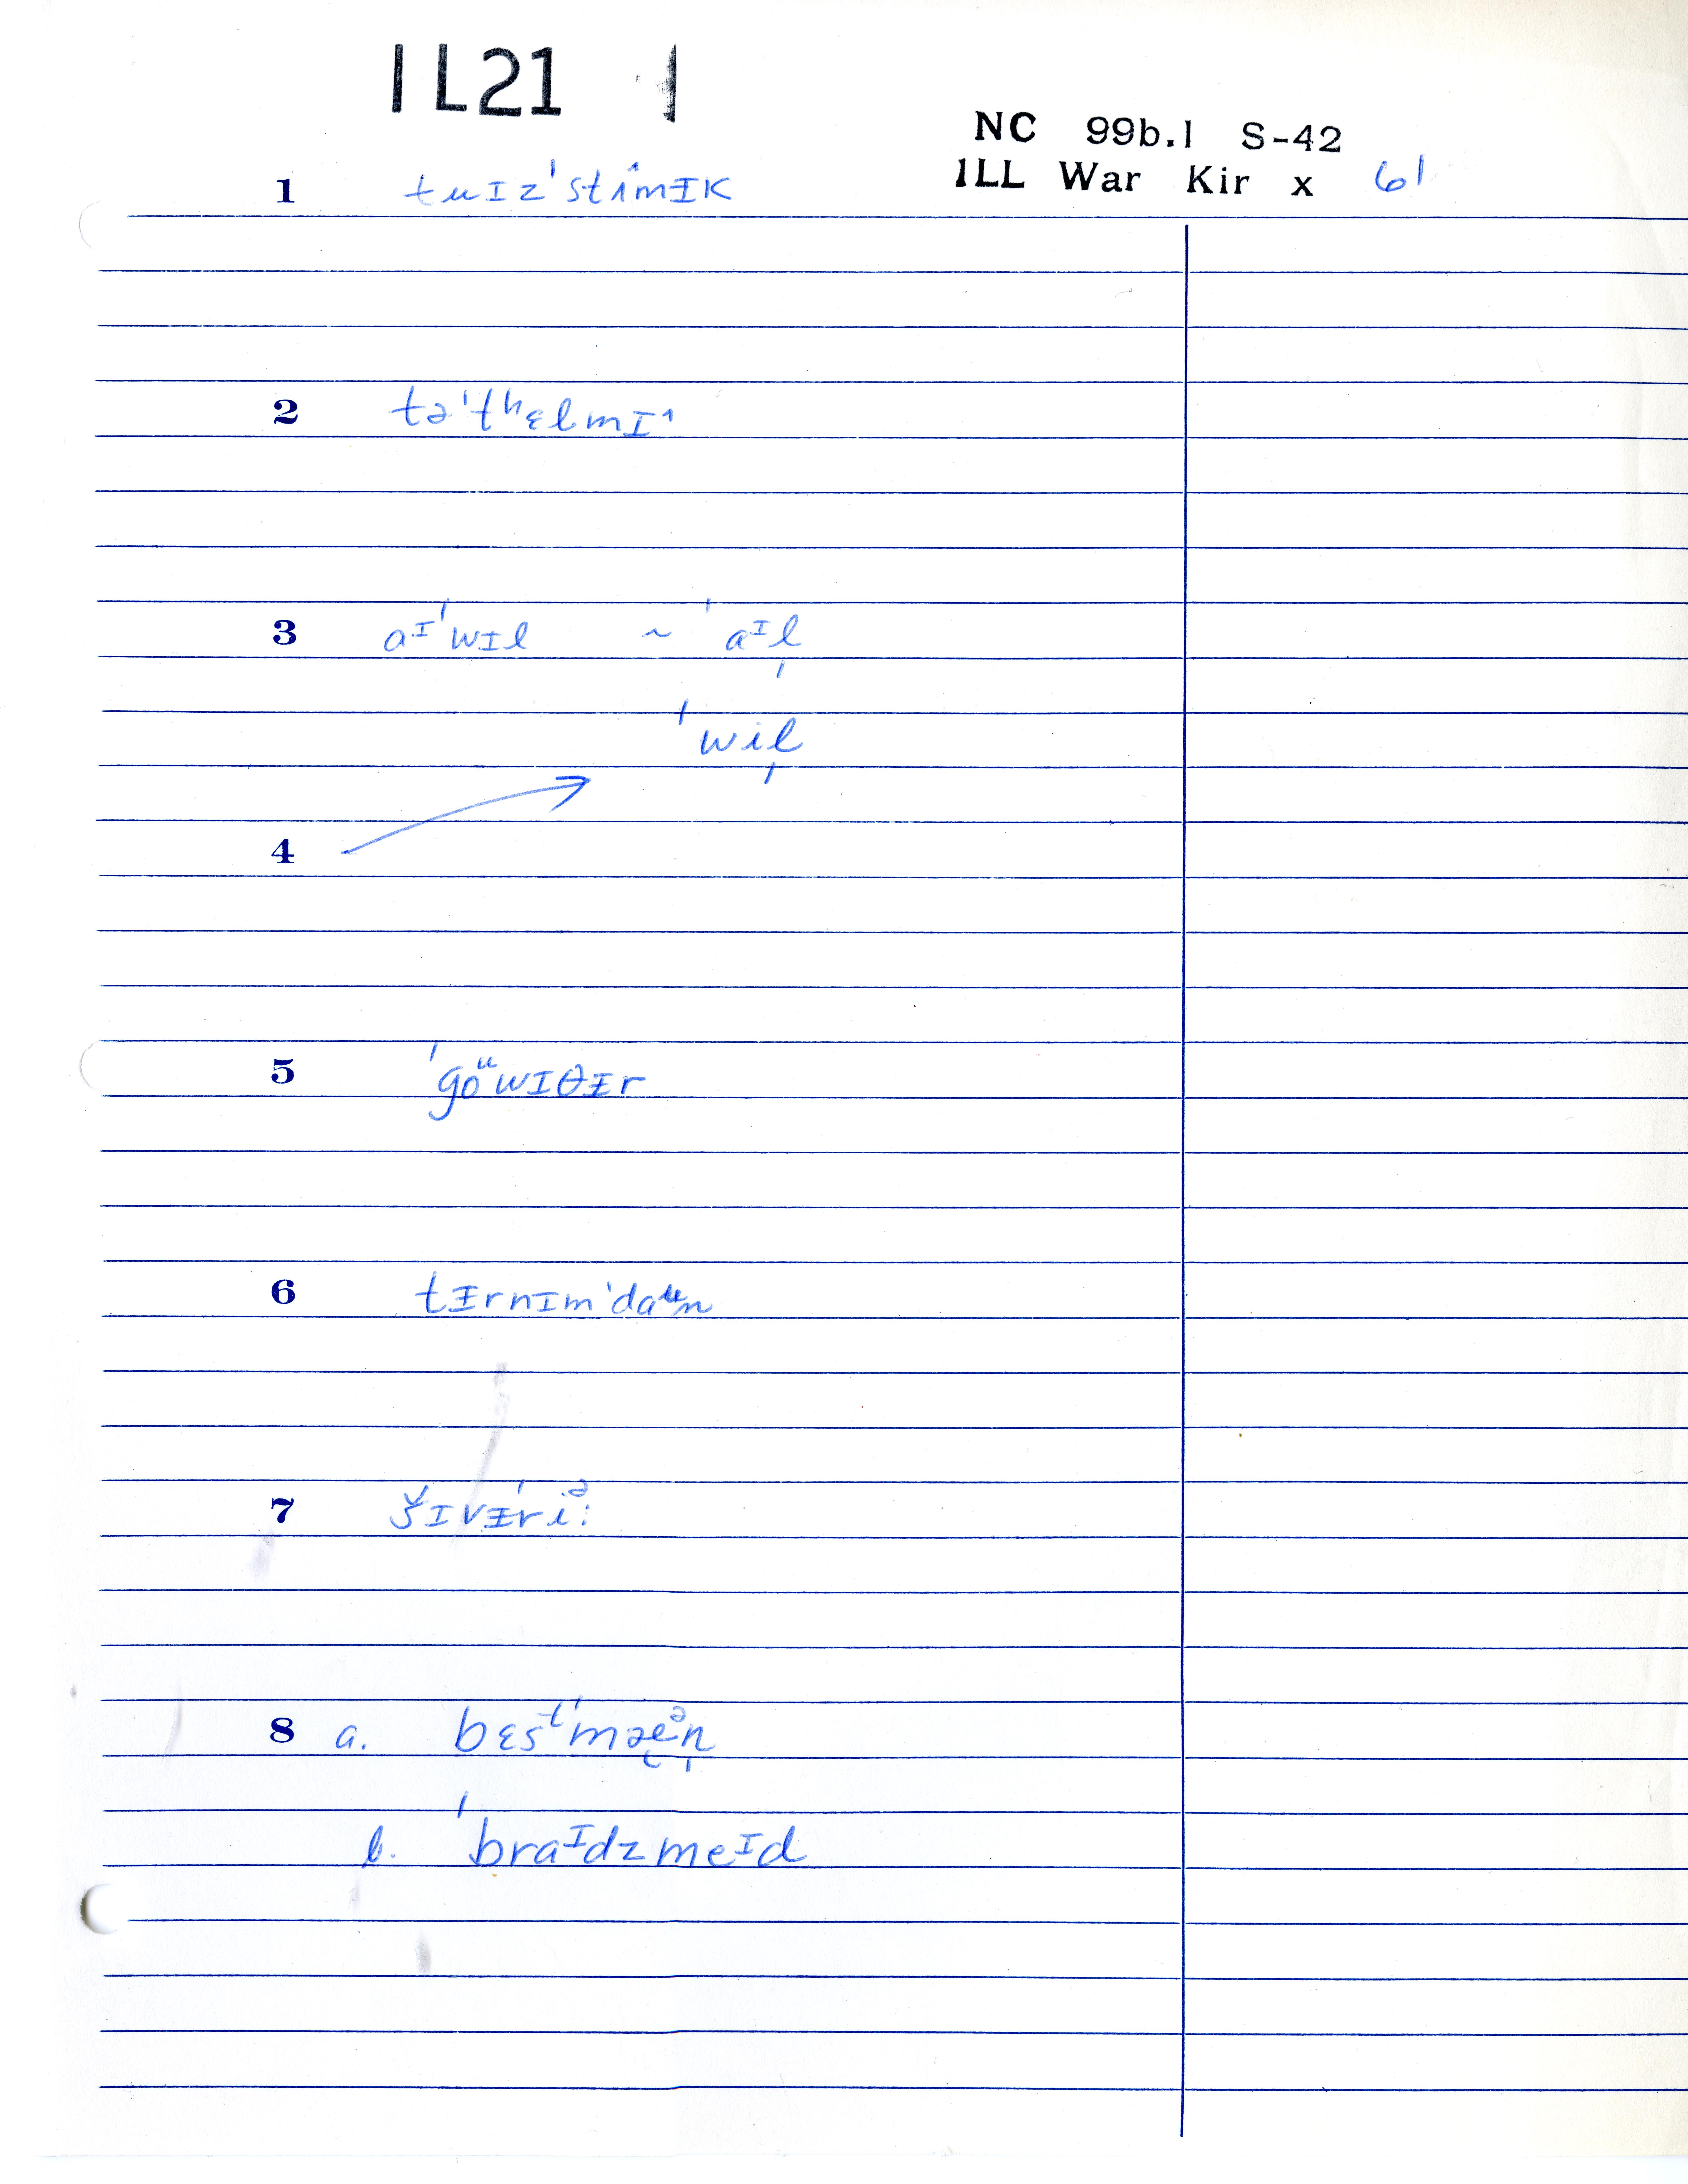 IL21 1
NC 99b.1 S-42
ILL War Kir x 61
1 tuɪzˈstʌ̂mɪk
2 təˈtʰɛlmɪ˄
3 aᶦˈwɪl ~ ˈaᶦl̩
ˈwil̩
4
5 ˈgoᵘwɪθᵻr
6 tᵻrnɪmˈdaᵘn
7 šɪvᵻˈriᵊ:
8 a. bɛsᵗˈmæ̬ᵊn̩
b. ˈbraᶦdzmeᶦd